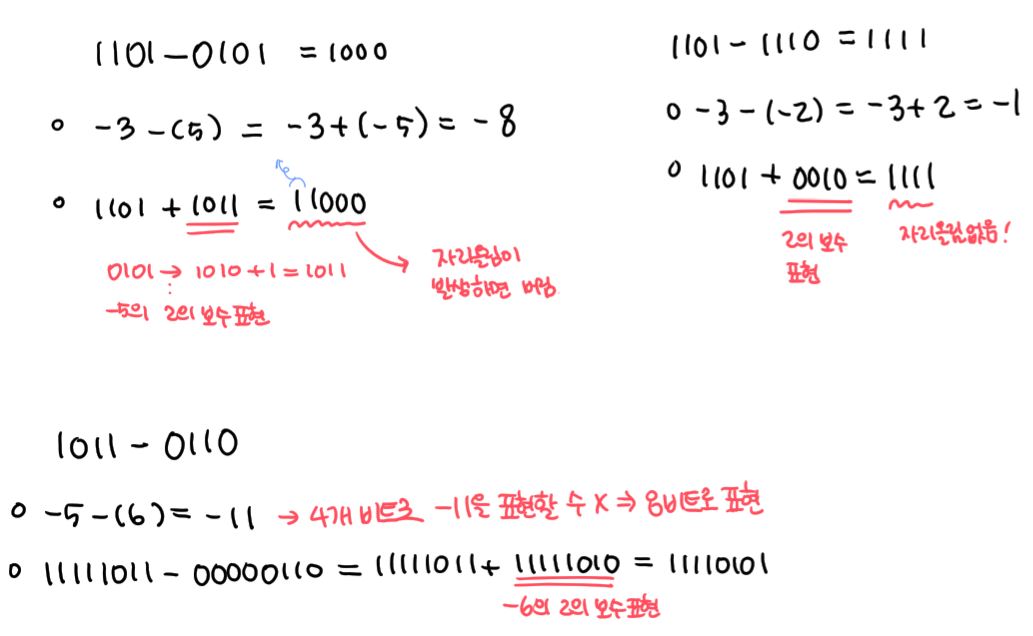 1101-0101 = 1000
-3-(5) = -3+(-5) = -8
1101 + 1011 = 11000
0101 → 1010+1=1011
-5의 2의 보수 표현
자리올림이
발생하면 버림
1101 - 1110 = 1111
-3-(-2) = -3+2 = -1
1101 + 0010 = 1111
2의 보수
표현
자리올림없음!
1011 - 0110
-5-(6) = -11 → 4개 비트로 -11을 표현할 수 X ⇒ 8비트로 표현
11111011 - 00000110 = 11111011 + 11111010 = 11110101
-6의 2의 보수 표현